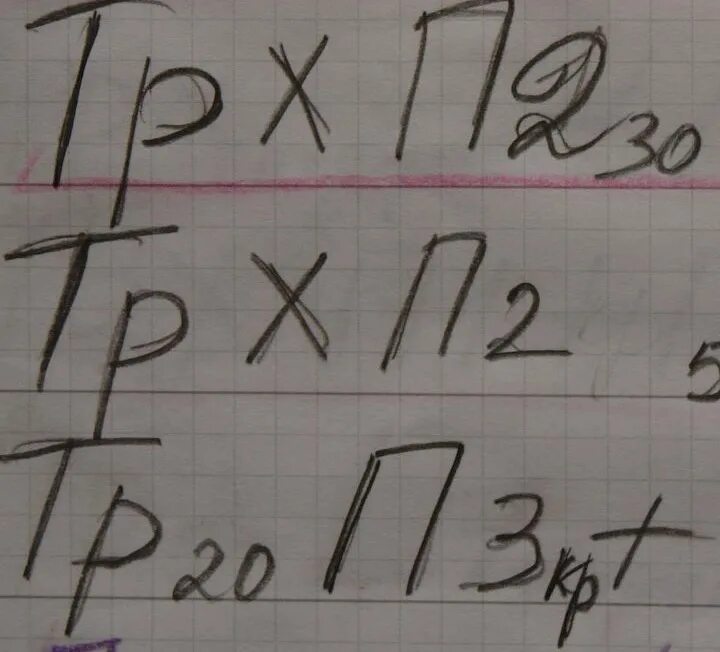 Тр X П 2 30
Тр X П 2 5
Тр 20 П 3 кр +